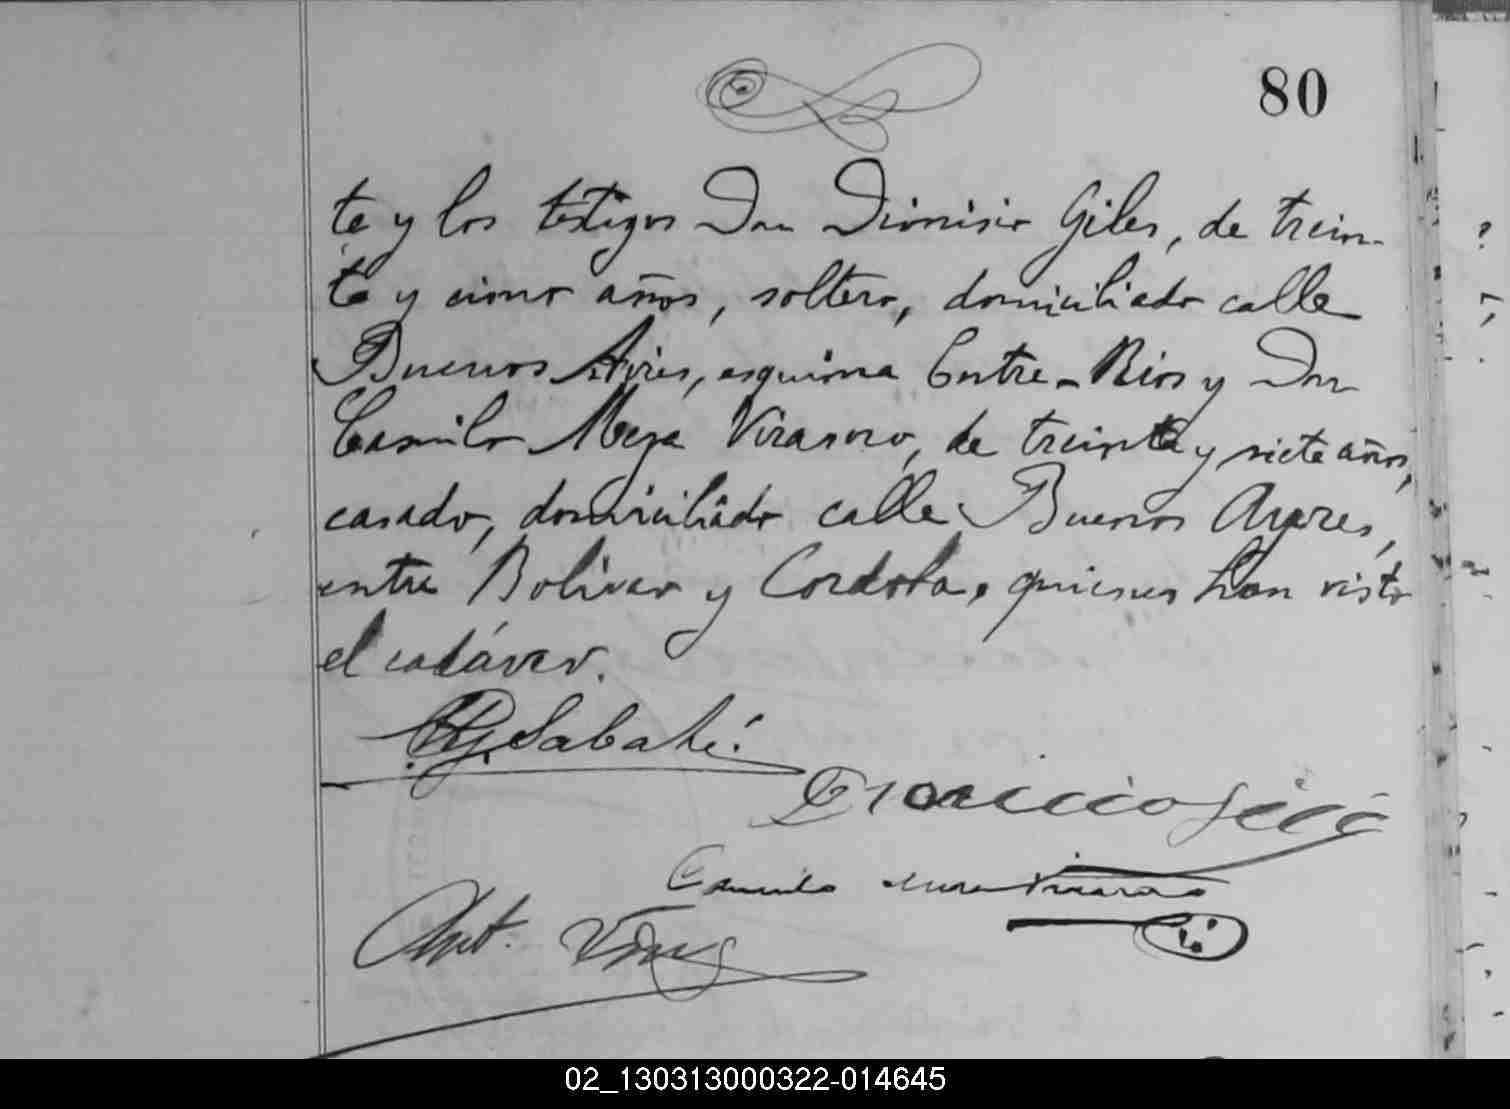 80
te y los testigos Don Dionisio Giles, de trein-
ta y cinco años, soltero, domiciliado calle
Buenos Aires, esquina Entre-Rios y Don
Camilo Meza Virasoro, de treinta y siete años,
casado, domiciliado calle Buenos Ayres,
entre Bolivar y Cordoba, quienes han visto
el cadáver.
Sabaté
Camilo Virasoro
Ant.
02_130313000322-014645